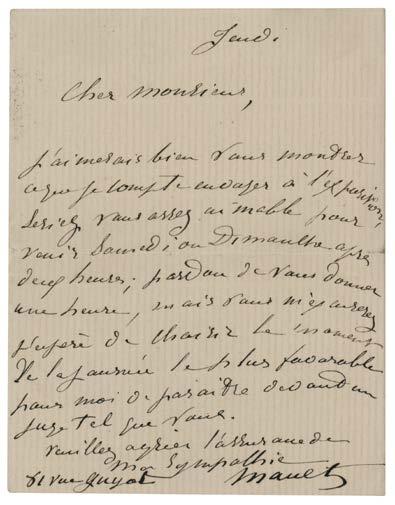 Jeudi
Cher monsieur,
j'aimerais bien vous montrer
ce que je compte envoyer à l'exposition,
seriez vous assez aimable pour
venir Samedi ou Dimanche après
deux heures; pardon de vous donner
une heure, mais vous m'excuserez
j'espère de choisir le moment
de la journée le plus favorable
pour moi de paraître devant un
juge tel que vous.
veuillez agréer l'assurance de
ma sympathie
81 rue guyot Manet